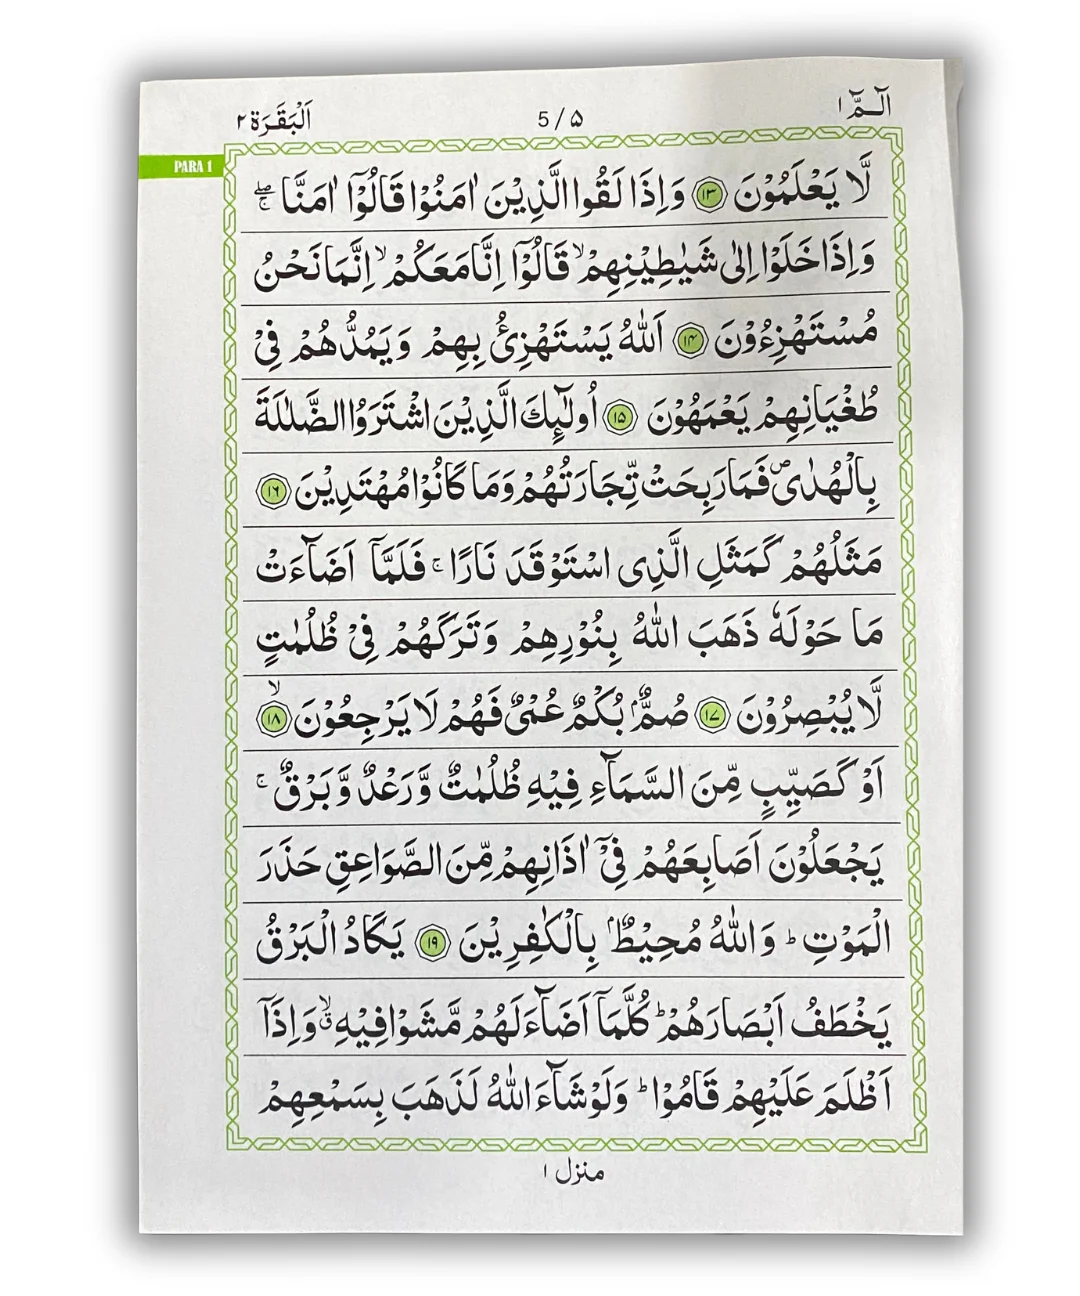 الٓـمّٓ ١ 5/۵ اَلْبَقَرَة ٢
PARA 1
لَّا يَعْلَمُوْنَ ١٣ وَاِذَا لَقُوا الَّذِيْنَ اٰمَنُوْا قَالُوْٓا اٰمَنَّا ۚۖ
وَاِذَا خَلَوْا اِلٰى شَيٰطِيْنِهِمْ ۙ قَالُوْٓا اِنَّا مَعَكُمْ ۙ اِنَّمَا نَحْنُ
مُسْتَهْزِءُوْنَ ١٤ اَللّٰهُ يَسْتَهْزِئُ بِهِمْ وَيَمُدُّهُمْ فِيْ
طُغْيَانِهِمْ يَعْمَهُوْنَ ١٥ اُولٰٓئِكَ الَّذِيْنَ اشْتَرَوُا الضَّلٰلَةَ
بِالْهُدٰى ۪ فَمَا رَبِحَتْ تِّجَارَتُهُمْ وَمَا كَانُوْا مُهْتَدِيْنَ ١٦
مَثَلُهُمْ كَمَثَلِ الَّذِى اسْتَوْقَدَ نَارًا ۚ فَلَمَّآ اَضَآءَتْ
مَا حَوْلَهٗ ذَهَبَ اللّٰهُ بِنُوْرِهِمْ وَتَرَكَهُمْ فِيْ ظُلُمٰتٍ
لَّا يُبْصِرُوْنَ ١٧ صُمٌّۢ بُكْمٌ عُمْىٌ فَهُمْ لَا يَرْجِعُوْنَ ۙ ١٨
اَوْ كَصَيِّبٍ مِّنَ السَّمَآءِ فِيْهِ ظُلُمٰتٌ وَّرَعْدٌ وَّبَرْقٌ ۚ
يَجْعَلُوْنَ اَصَابِعَهُمْ فِيْٓ اٰذَانِهِمْ مِّنَ الصَّوَاعِقِ حَذَرَ
الْمَوْتِ ؕ وَاللّٰهُ مُحِيْطٌۢ بِالْكٰفِرِيْنَ ١٩ يَكَادُ الْبَرْقُ
يَخْطَفُ اَبْصَارَهُمْ ؕ كُلَّمَآ اَضَآءَ لَهُمْ مَّشَوْا فِيْهِ ۙۗ وَاِذَآ
اَظْلَمَ عَلَيْهِمْ قَامُوْا ؕ وَلَوْ شَآءَ اللّٰهُ لَذَهَبَ بِسَمْعِهِمْ
منزل ١